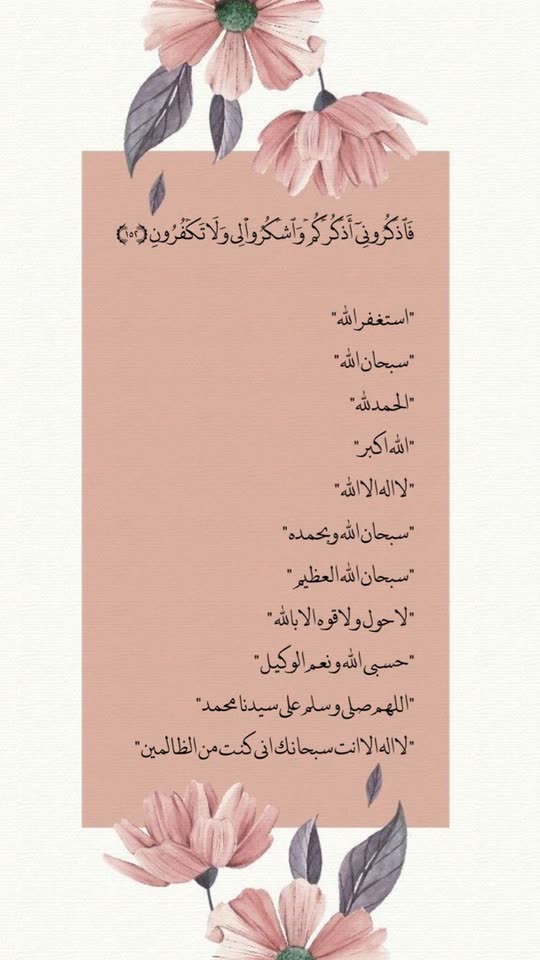 فَٱذۡكُرُونِيٓ أَذۡكُرۡكُمۡ وَٱشۡكُرُواْ لِي وَلَا تَكۡفُرُونِ ﴿١٥٢﴾
"استغفر الله"
"سبحان الله"
"الحمدلله"
"الله اكبر"
"لا اله الا الله"
"سبحان الله وبحمده"
"سبحان الله العظيم"
"لا حول ولا قوه الا بالله"
"حسبي الله ونعم الوكيل"
"اللهم صلي وسلم على سيدنا محمد"
"لا اله الا انت سبحانك اني كنت من الظالمين"